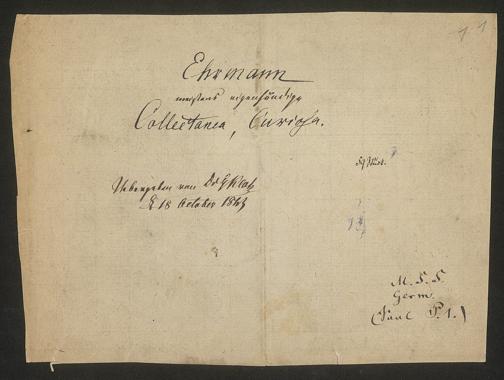 Ehrmann
meistens eigenhändige
Collectanea, Curiosa.
Uebergeben von Dr
18 October 18
M. S. F.
Germ.